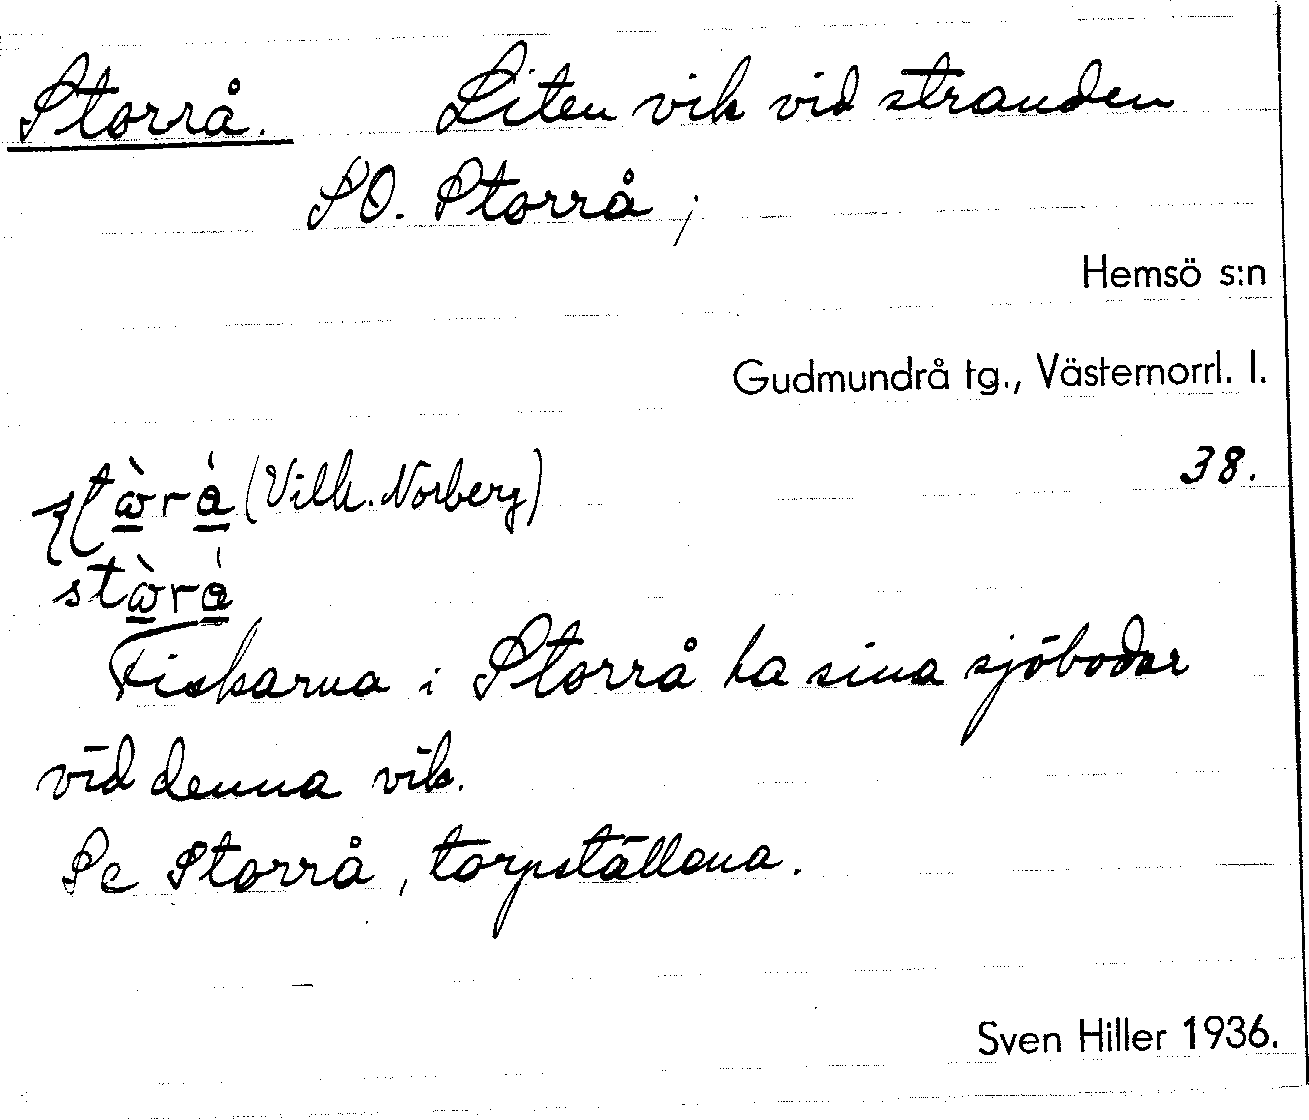 Storrå. Liten vik vid stranden
SO. Storrå;
Hemsö s:n
Gudmundrå tg., Västernorrl. l.
38.
(Vilh. Norberg)
Fiskarna i Storrå ha sina sjöbodar
vid denna vik.
Se Storrå, torpställena.
Sven Hiller 1936.